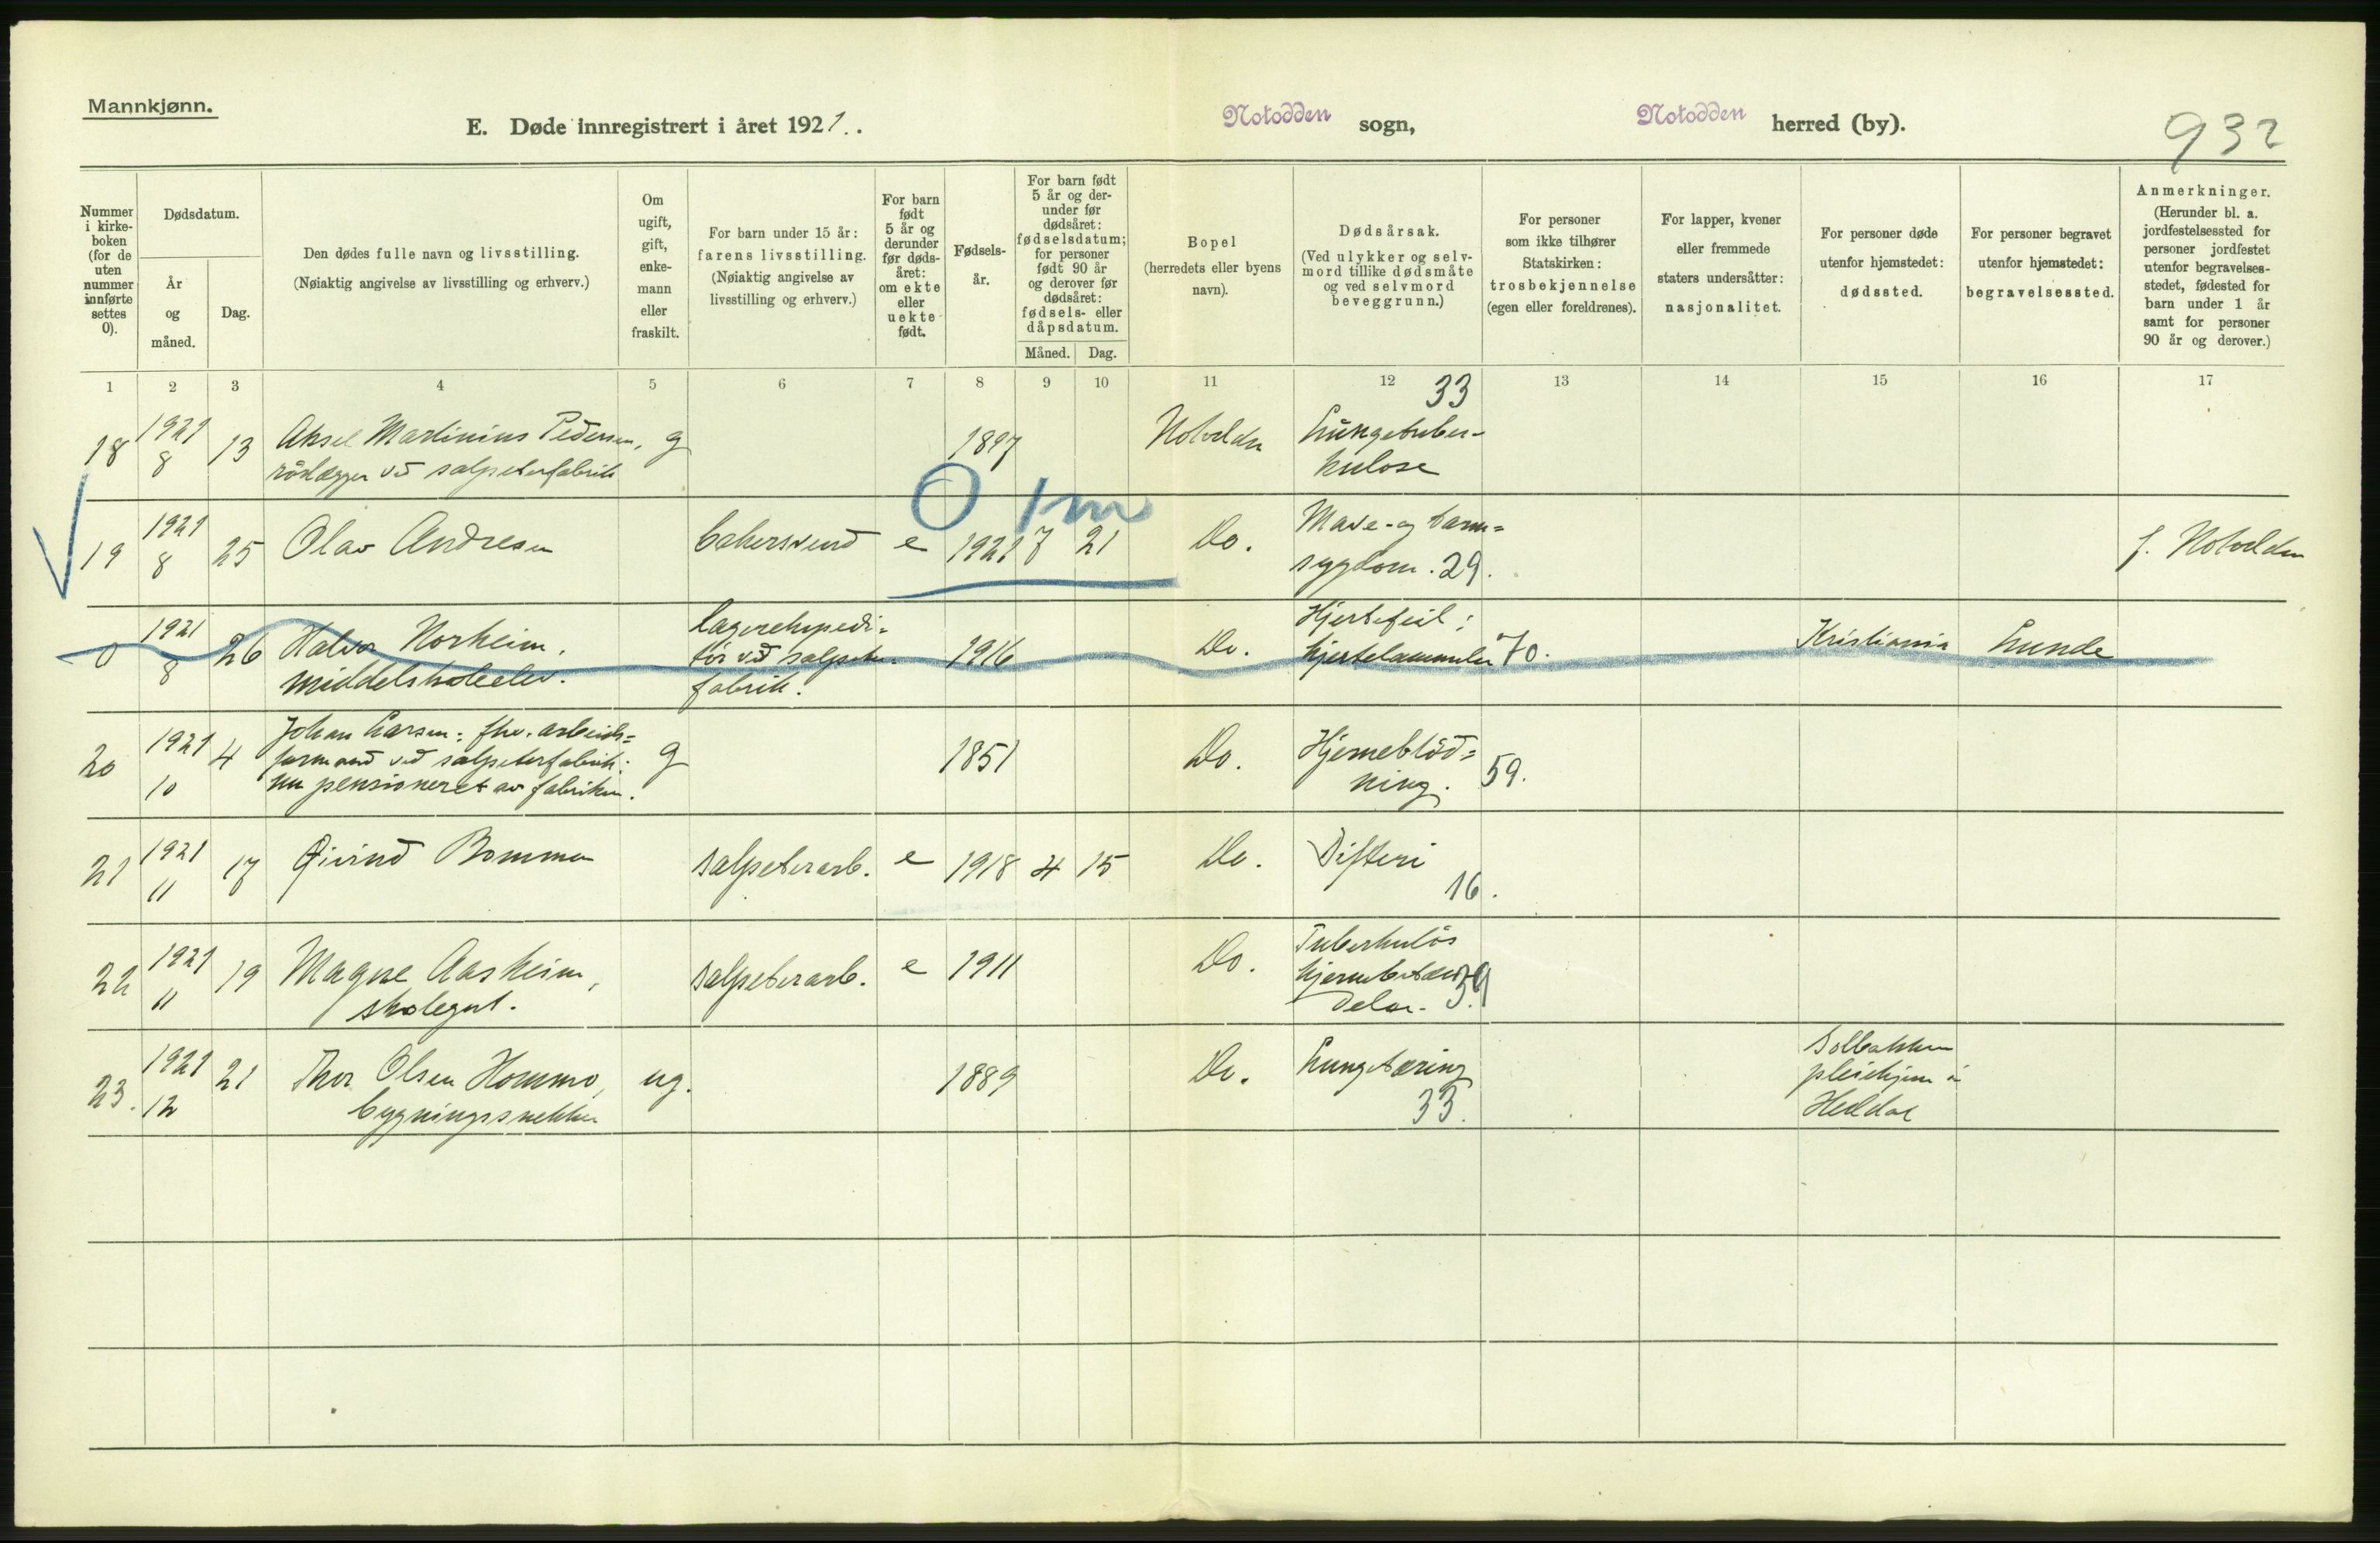 Mannkjønn.
E. Døde innregistrert i året 1921.
Notodden sogn,
Notodden herred (by).
932
Nummer i kirke-boken (for de uten nummer innførte settes 0).
Dødsdatum.
År og måned.
Dag.
Den dødes fulle navn og livsstilling.
(Nøiaktig angivelse av livsstilling og erhverv.)
Om ugift, gift, enke-mann eller fraskilt.
For barn under 15 år: farens livsstilling.
(Nøiaktig angivelse av livsstilling og erhverv.)
For barn født 5 år og derunder før døds-året: om ekte eller uekte født.
Fødsels-år.
For barn født 5 år og der-under før dødsåret: fødselsdatum; for personer født 90 år og derover før dødsåret: fødsels- eller dåpsdatum.
Måned. Dag.
Bopel
(herredets eller byens navn).
Dødsårsak.
(Ved ulykker og selv-mord tillike dødsmåte og ved selvmord beveggrunn.)
For personer som ikke tilhører Statskirken: trosbekjennelse (egen eller foreldrenes).
For lapper, kvener eller fremmede staters undersåtter: nasjonalitet.
For personer døde utenfor hjemstedet: dødssted.
For personer begravet utenfor hjemstedet: begravelsessted.
Anmerkninger.
(Herunder bl. a. jordfestelsessted for personer jordfestet utenfor begravelses-stedet, fødested for barn under 1 år samt for personer 90 år og derover.)
1 2 3 4 5 6 7 8 9 10 11 12 13 14 15 16 17
33
18 1921 8 13 Aksel Martinius Pedersen, g 1897 Notodden Lungetuber-
rörlægger vd salpeterfabrik kulose
0 1m
19 1921 8 25 Olav Andresen bakersvend e 1921 7 21 Do. Mave- og tarm=
sygdom. 29. f. Notodden
0 1921 8 26 Halvor Norheim, lagerekspedi= 1916 Do. Hjertefeil; Kristiania Lunde
middelskoleelev. tör vd salpeter- 70.
fabrik.
20 1921 10 4 Johan Larsen: fhv. arbeids= g 1851 Do. Hjerneblöd=
formand ved salpeterfabrik; ning. 59.
nu pensioneret av fabriken.
21 1921 11 17 Øivind Bomman salpeterarb. e 1918 4 15 Do. Difteri
16.
22 1921 11 19 Magne Aasheim, salpeterarb. e 1911 Do. Tuberkulös
skolegut. 39
23. 1921 12 21 Thor Olsen Hommo, ug. 1889 Do. Lungetæring Solbakken
bygningssnekker 33. pleiehjem i
Heddal